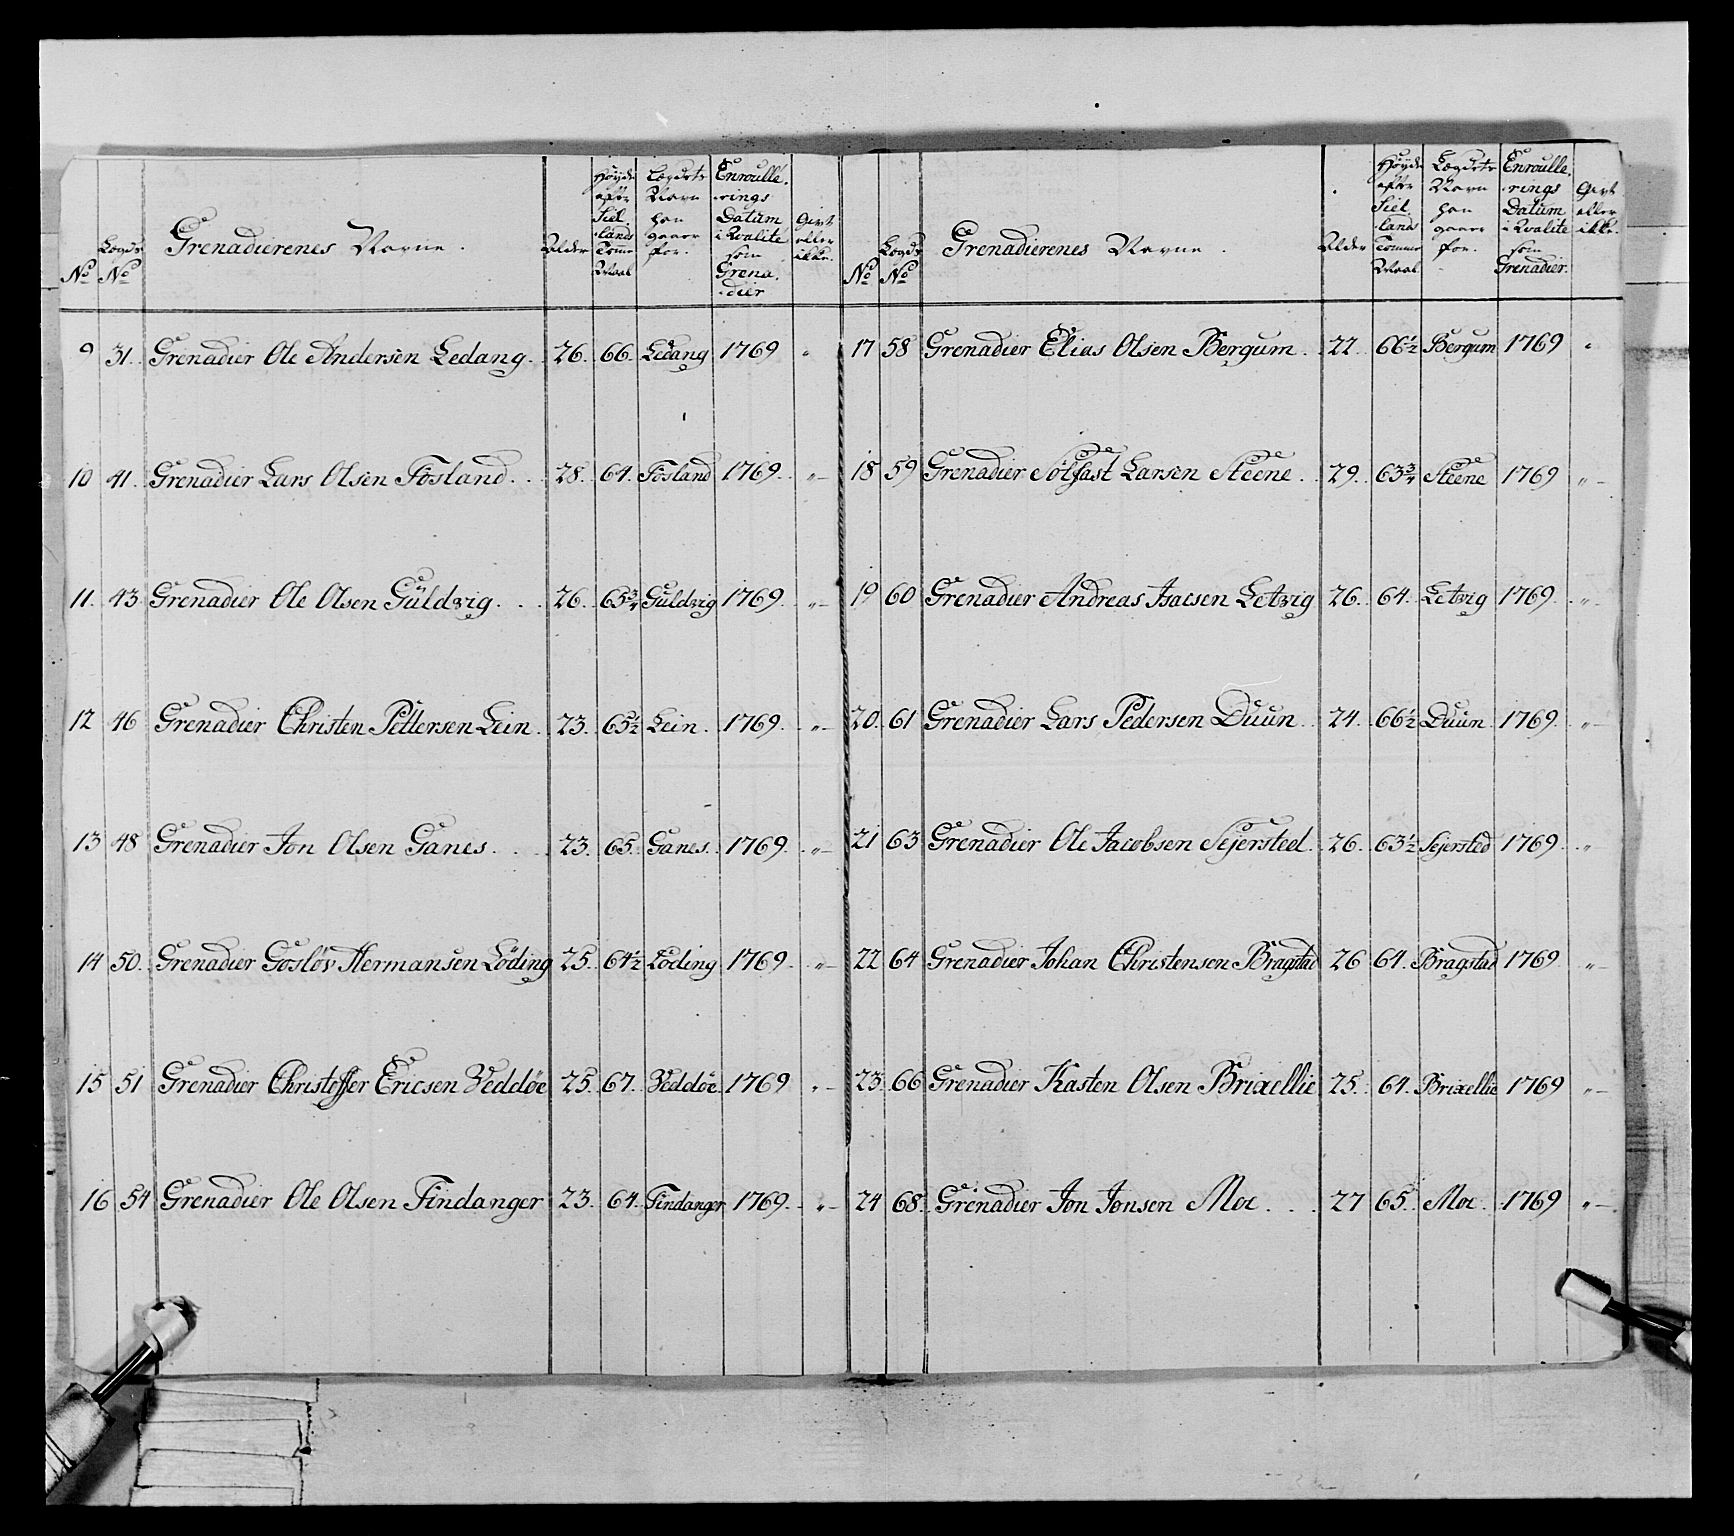 No
Lægds No
Grenadierenes Navne.
Alder
Høyde efter Siel. lands Tomme Maal
Lægdets Navn han gaaer for.
Enroulle. rings Datum i Qvalite som Grena. dier
Givt eller ikke.
9 31. Grenadier Ole Andersen Ledang. 26. 66. Ledang 1769 "
10 41. Grenadier Lars Olsen Fösland. 28. 64. Fösland 1769. "
11. 43. Grenadier Ole Olsen Güldvig. 26. 65¾ Guldvig 1769. "
12 46 Grenadier Christen Pettersen Lein. 23. 65½ Lein. 1769. "
13 48 Grenadier Jon Olsen Ganes. 23. 65. Ganes. 1769. "
14 50. Grenadier Gosløv Hermansen Löding 25. 64½ Löding 1769. "
15 51 Grenadier Christoffer Ericsen Veddöe 25. 67. Veddöe 1769 "
16 54 Grenadier Ole Olsen Findanger 23. 64. Findanger 1769. "
No
Lægds No
Grenadierenes Navne.
Alder
Høyde efter Siel. lands Tomme Maal
Lægdets Navn han gaaer for.
Enroulle. rings Datum i Qvalite som Grenadier.
Givt eller ikke.
17 58 Grenadier Elias Olsen Bergum. 22. 66½ Bergum 1769 "
18 59 Grenadier Sölfast Larsen Steene. 29. 63¾ Steene 1769 "
19 60 Grenadier Andreas Isacsen Letvig 26. 64. Letvig 1769. "
20. 61 Grenadier Lars Pedersen Duun. 24. 66½ Duun. 1769. "
21 63 Grenadier Ole Jacobsen Sejersted. 26. 63½ Sejersted 1769. "
22 64 Grenadier Johan Christensen Bragstad 26 64. Bragstad 1769. "
23. 66 Grenadier Kasten Olsen Brixellie 25. 64. Brixellie 1769 "
24 68. Grenadier Jon Jonsen Moe. 27 65. Moe. 1769 "